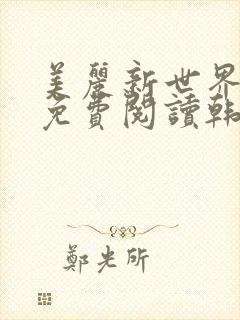 美麗新世界
免費閱讀韩
鄭光所